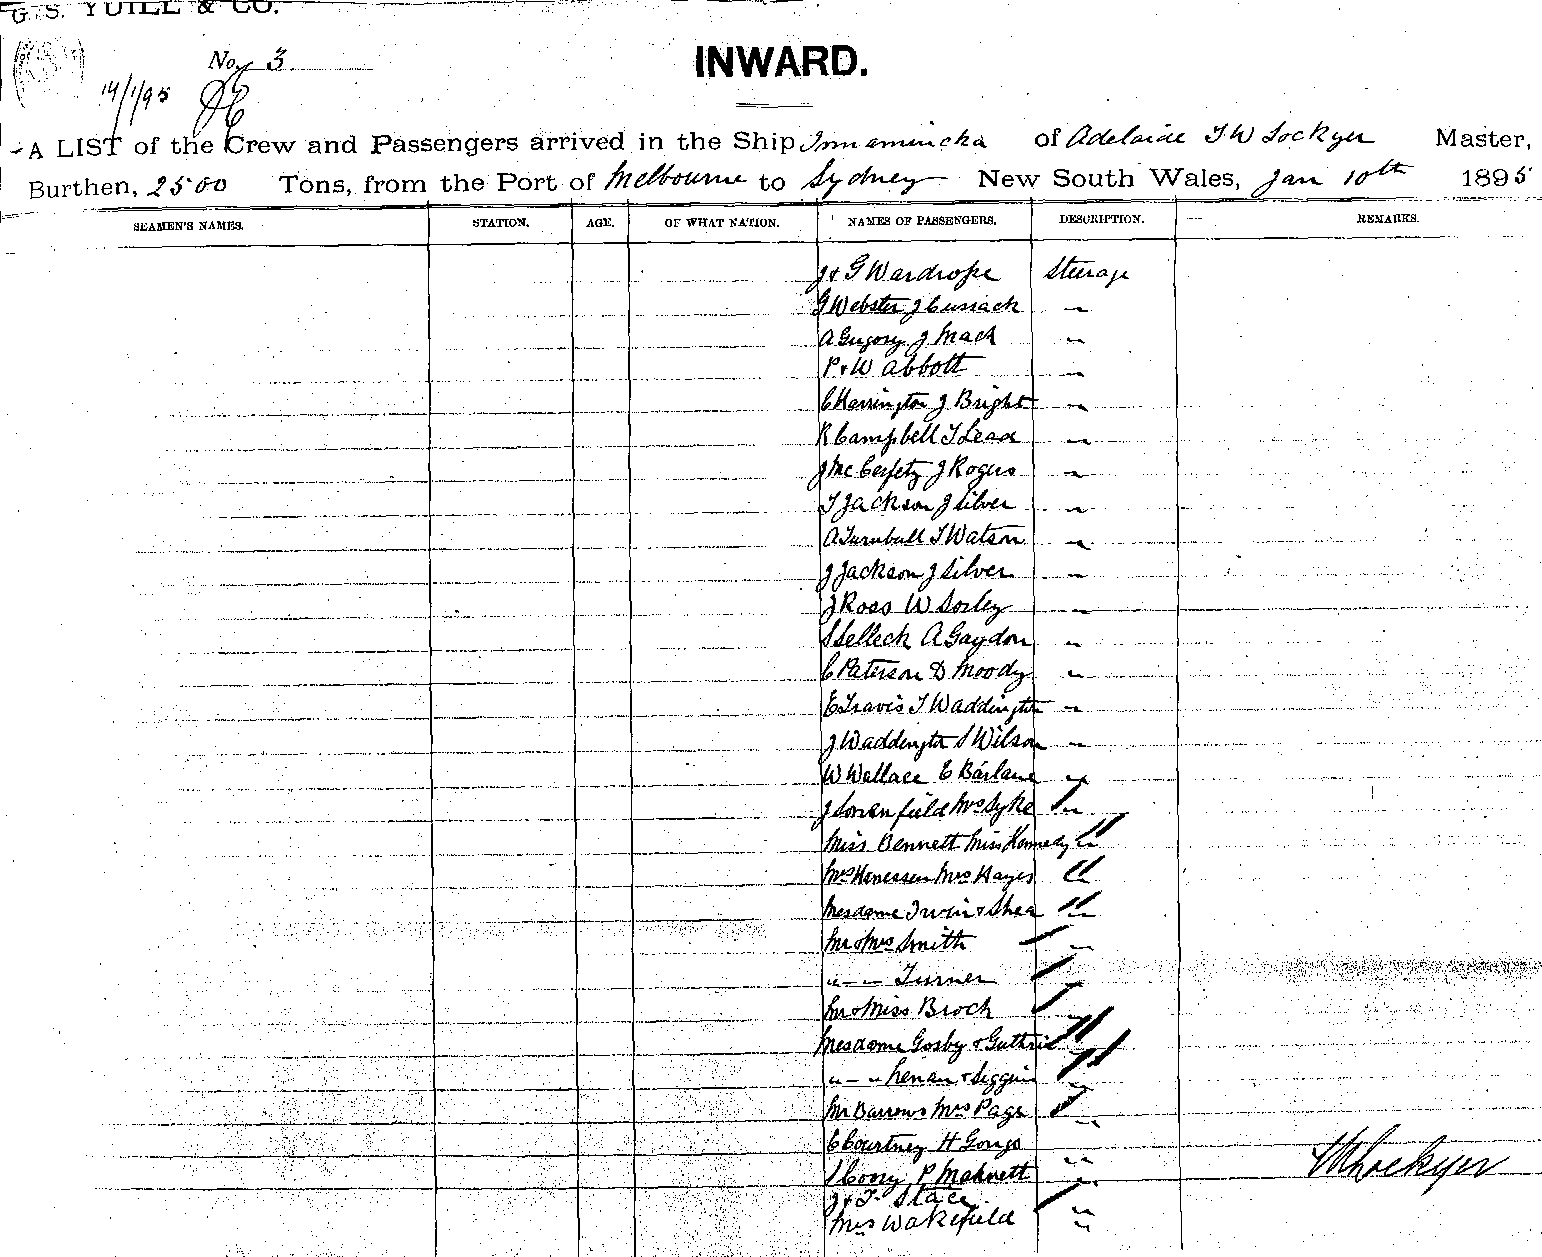 G. S. YUILL & CO.
No. 3
INWARD.
14/1/95
A LIST of the Crew and Passengers arrived in the Ship Innamincka of Adelaide T W Lockyer Master,
Burthen, 2500 Tons, from the Port of Melbourne to Sydney New South Wales, Jan 10th 1895
SEAMEN'S NAMES. STATION. AGE. OF WHAT NATION. NAMES OF PASSENGERS. DESCRIPTION. REMARKS.
J & G Wardrope Steerage
G Webster J Cussack "
A Gregory J Mack "
P & W Abbott "
C Harrington J Bright "
R Campbell T Lead "
J Mc J Rogers "
T Jackson J Silver "
A Turnbull T Watson "
J Jackson J Silver "
J Ross W Sorley "
S Selleck A Gaydon "
C Paterson D Moody "
E Travis T Waddington "
J Waddington S Wilson "
W Wallace E "
J Mrs Syke "
Miss Bennett Miss Kennedy "
Mrs Mrs Hayes "
Mesdame Irwin & Shea "
Mr & Mrs Smith "
" - " Turner "
Mr & Miss Brock "
Mesdame Gosby & Guthrie "
" - " & "
Mr Barrows Mrs Page "
C Courtney H "
S P "
J & T Stace "
Mrs Wakefield "
T W Lockyer